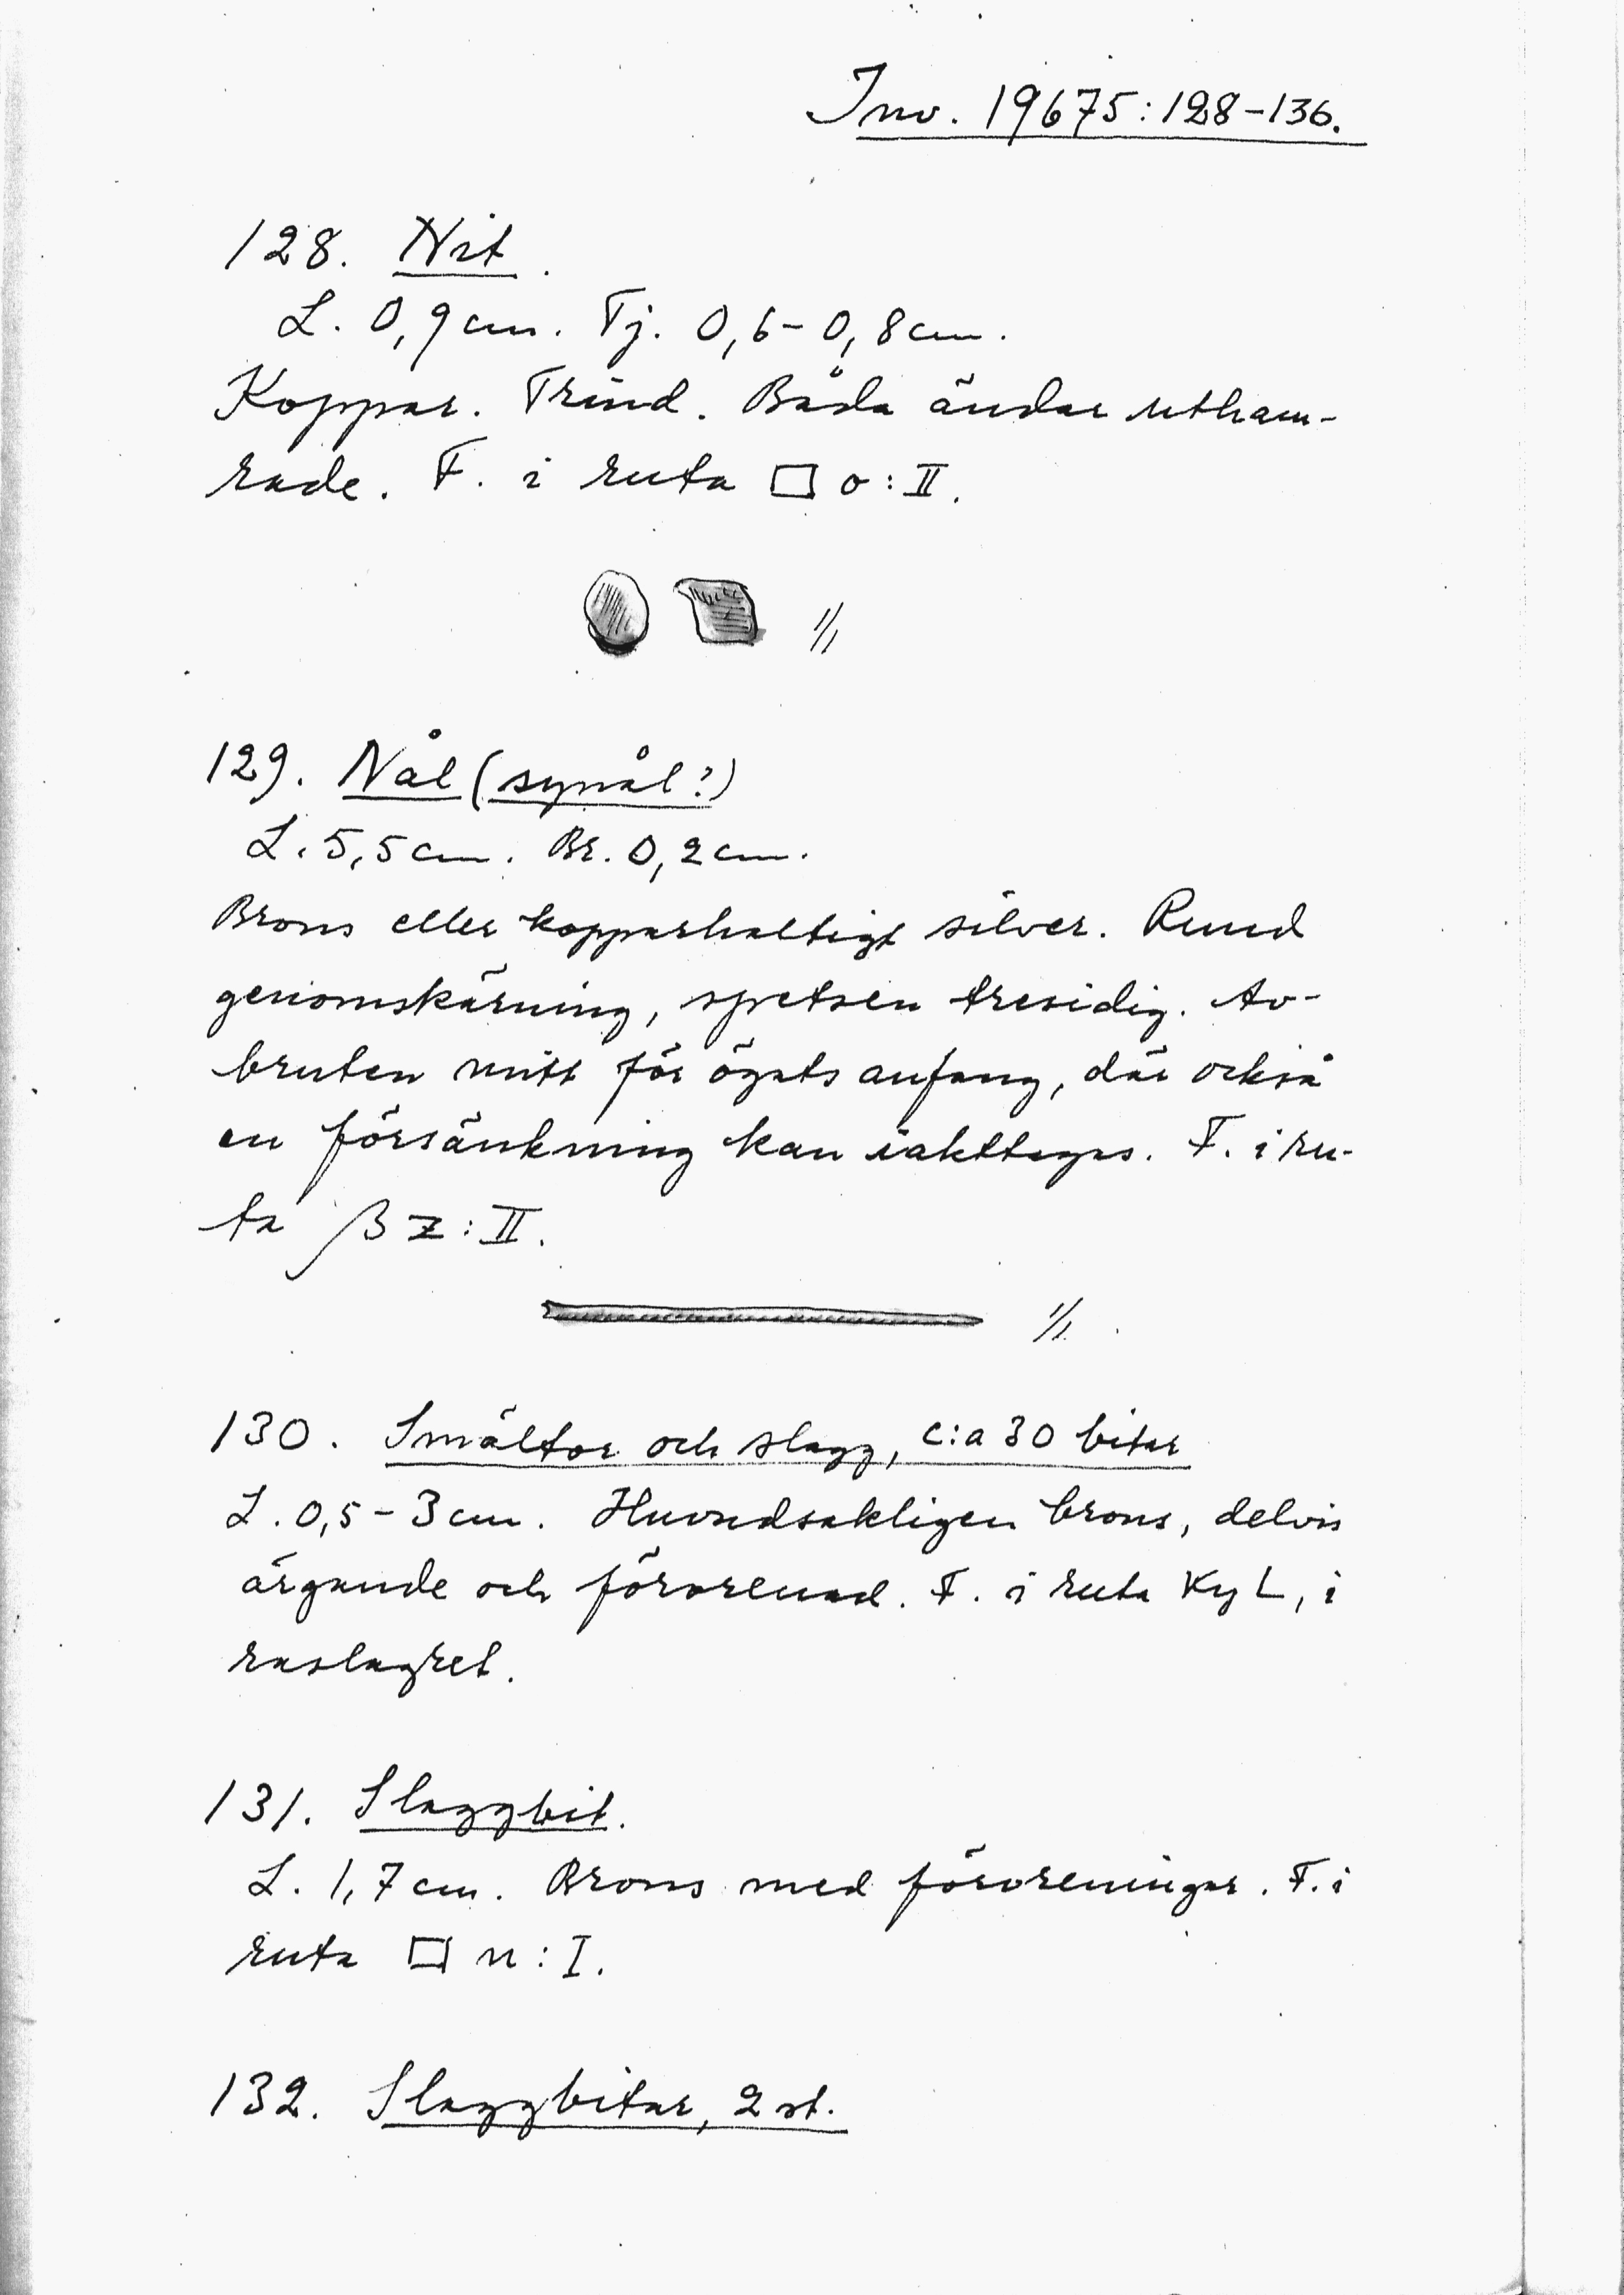 Inv. 19675:128-136.
128. Nit.
L. 0,9 cm. Tj. 0,6-0,8 cm.
Koppar. Trind. Båda ändar utham-
rade. F. i ruta □ o:II.
1/1
129. Nål (synål?)
L. 5,5 cm. Br. 0,2 cm.
Brons eller kopparhaltigt silver. Rund
genomskärning, spetsen tresidig. Av-
bruten mitt för ögats anfang, där också
en försänkning kan iakttagas. F. i ru-
ta β z:II.
1/1.
130. Smältor och slagg, c:a 30 bitar
L. 0,5-3 cm. Huvudsakligen brons, delvis
ärgande och förorenad. F. i ruta Ky L, i
raslagret.
131. Slaggbit.
L. 1,7 cm. Brons med föroreningar. F. i
ruta □ n:I.
132. Slaggbitar, 2 st.